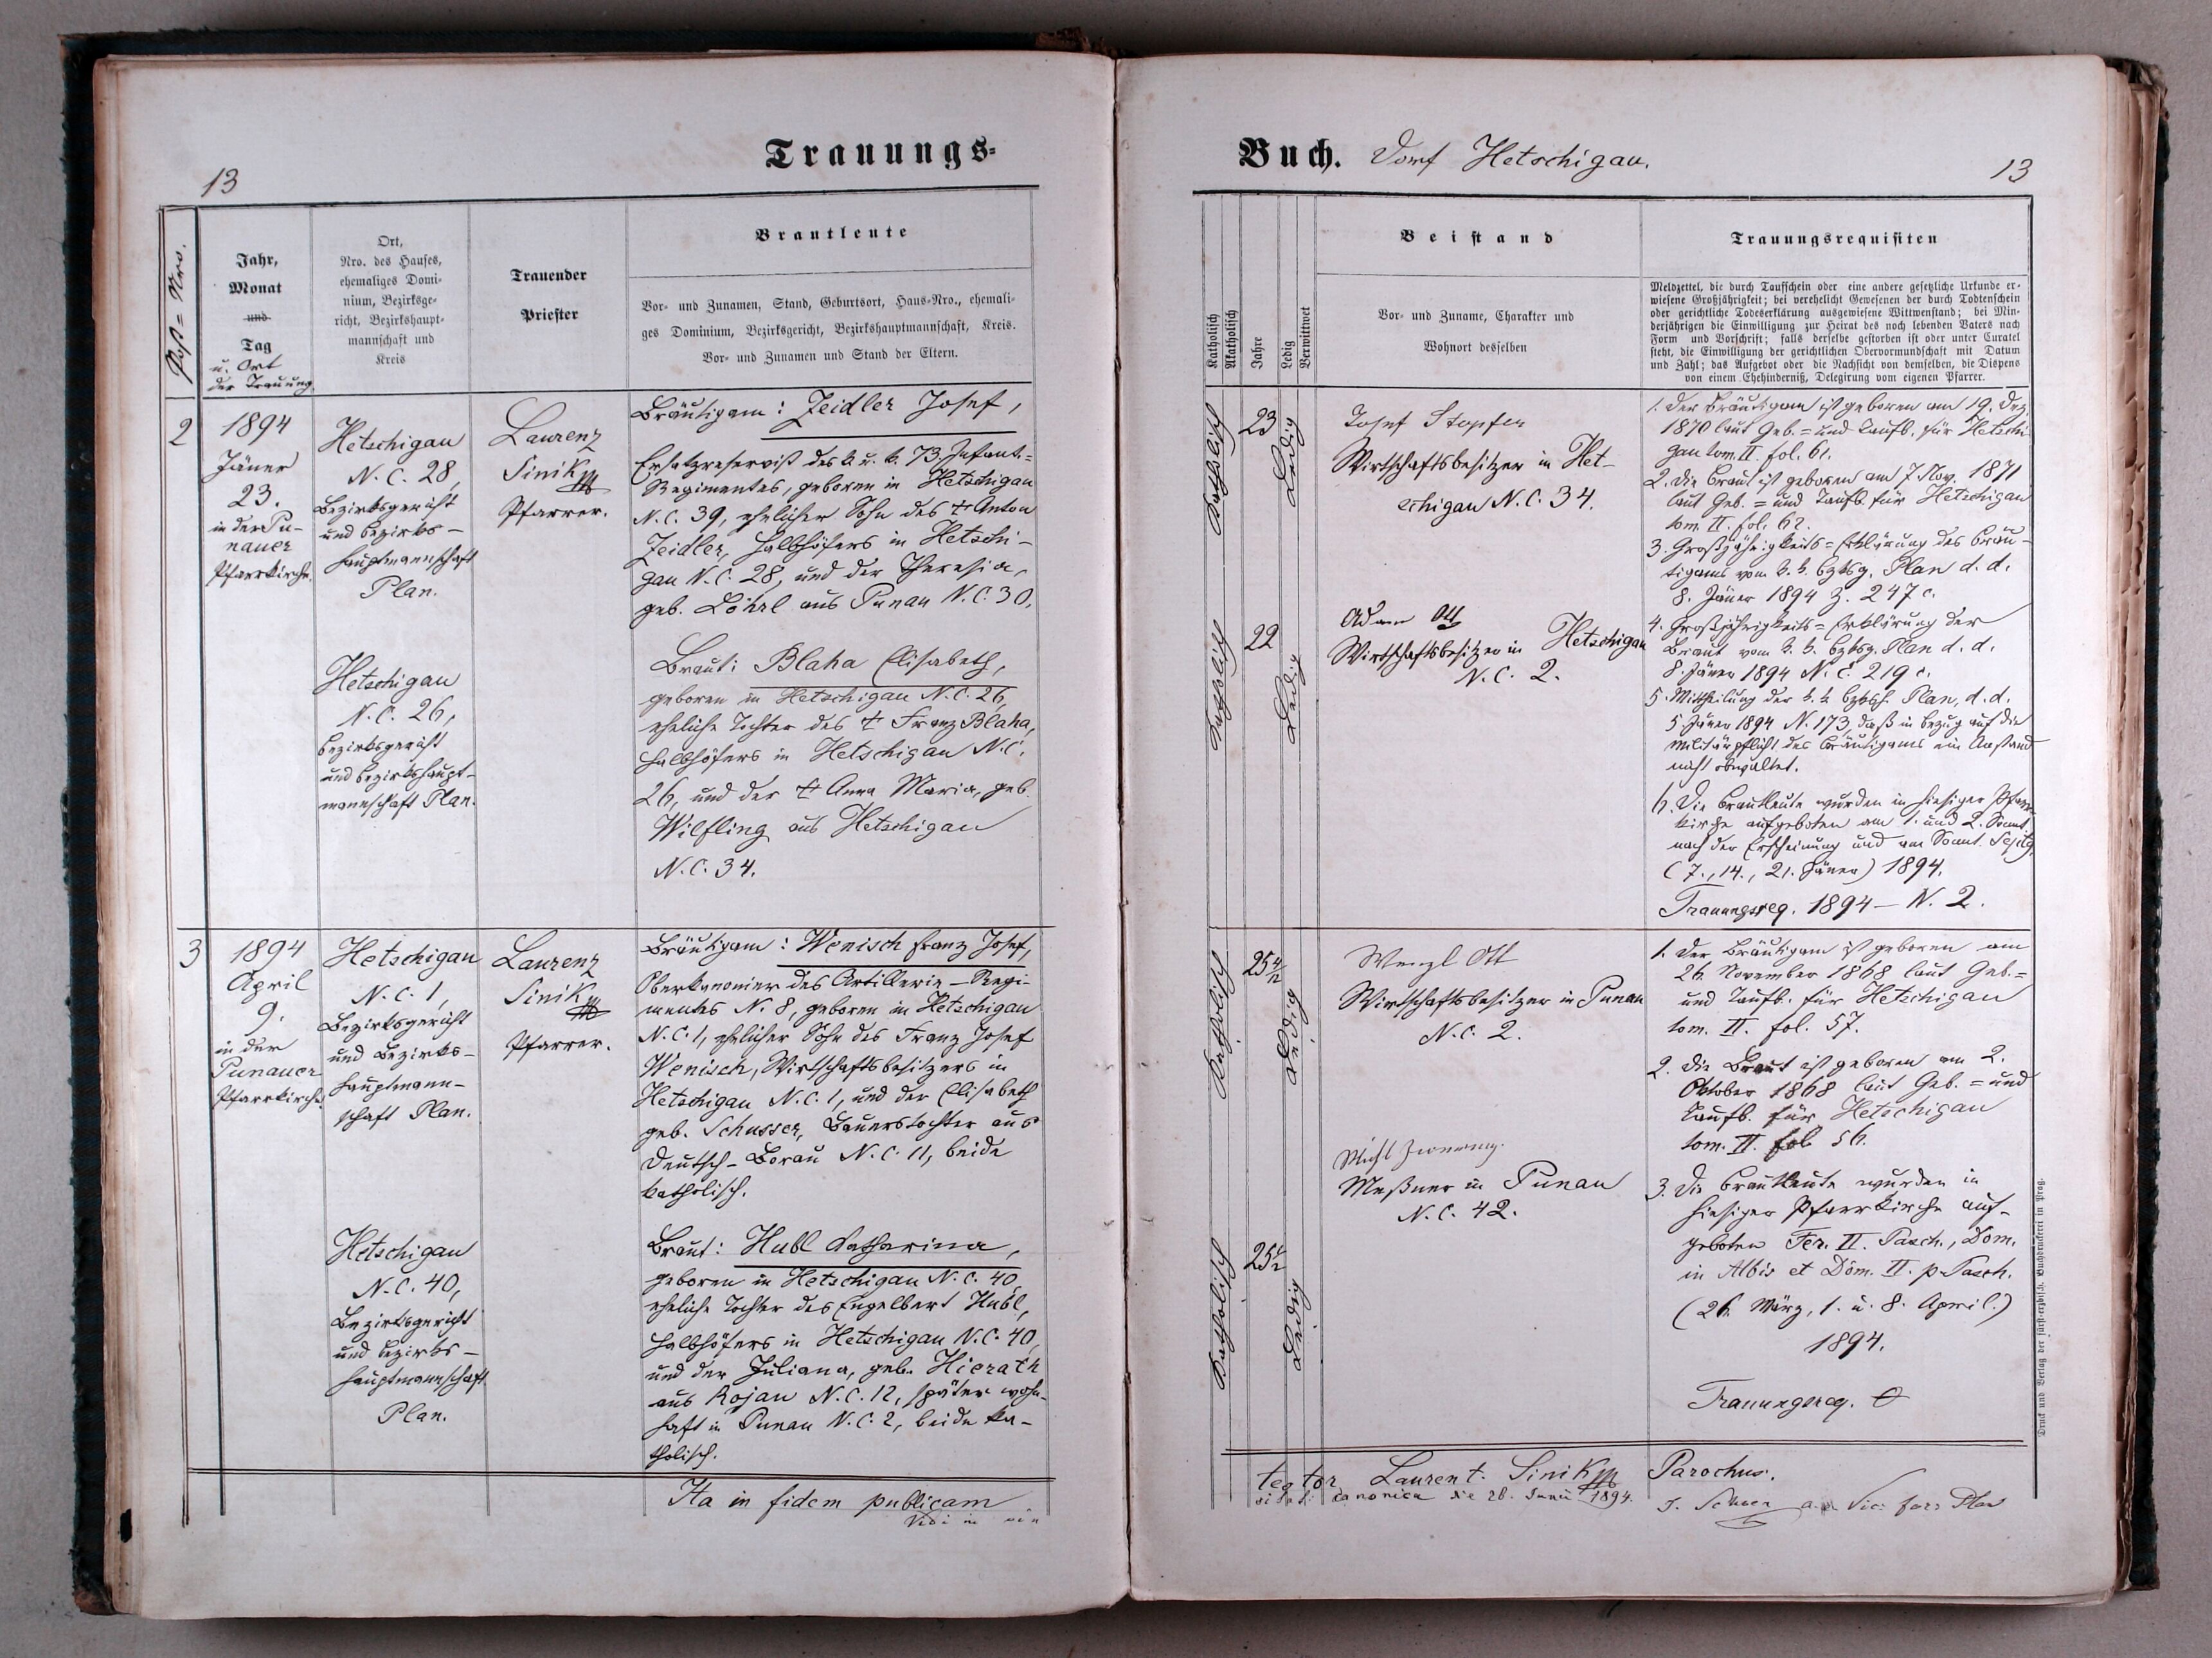 Trauungs-
13
Post-Nro.
Jahr,
Monat
und
Tag
u. Ort
der Trauung.
Ort,
Nro. des Hauses,
ehemaliges Domi-
nium, Bezirksge-
richt, Bezirkshaupt-
mannschaft und
Kreis
Trauender
Priester
Brautleute
Vor- und Zunamen, Stand, Geburtsort, Haus-Nro., ehemali-
ges Dominium, Bezirksgericht, Bezirkshauptmannschaft, Kreis.
Vor- und Zunamen und Stand der Eltern.
2
1894
Jäner
23.
in der Pu-
nauer
Pfarrkirche.
Hetschigau
N. C. 28,
Bezirksgericht
und Bezirks-
hauptmannschaft
Plan.
Laurenz
Sinik
Pfarrer.
Bräutigam: Zeidler Josef,
Ersatzreservist des k. u. k. 73. Infant.-
Regimentes, geboren in Hetschigau
N. C. 39, ehelicher Sohn des † Anton
Zeidler, Halbhöfers in Hetschi-
gau N. C. 28, und der Theresia,
geb. Löhrl aus Punau N. C. 30.
Hetschigau
N. C. 26,
Bezirksgericht
und Bezirkshaupt-
mannschaft Plan.
Braut: Blaha Elisabeth,
geboren in Hetschigau N. C. 26,
eheliche Tochter des † Franz Blaha,
Halbhöfers in Hetschigau N. C.
26, und der † Anna Maria, geb.
Wilfling aus Hetschigau
N. C. 34.
3
1894
April
9.
in der
Punauer
Pfarrkirche.
Hetschigau
N. C. 1,
Bezirksgericht
und Bezirks-
hauptmann-
schaft Plan.
Laurenz
Sinik
Pfarrer.
Bräutigam: Wenisch Franz Josef,
Oberkanonier des Artillerie-Regi-
mentes N. 8, geboren in Hetschigau
N. C. 1, ehelicher Sohn des Franz Josef
Wenisch, Wirtschaftsbesitzers in
Hetschigau N. C. 1, und der Elisabeth
geb. Schusser, Bauerstochter aus
Deutsch-Borau N. C. 11, beide
katholisch.
Hetschigau
N. C. 40,
Bezirksgericht
und Bezirks-
hauptmannschaft
Plan.
Braut: Hubl Katharina,
geboren in Hetschigau N. C. 40,
eheliche Tochter des Engelbert Hubl,
Halbhöfers in Hetschigau N. C. 40,
und der Juliana, geb. Hierath
aus Rojau N. C. 12, später wohn-
haft in Punau N. C. 2, beide ka-
tholisch.
Ita in fidem publicam
Buch. Dorf Hetschigau.
13
Katholisch
Akatholisch
Jahre
Ledig
Verwittwet
Beistand
Vor- und Zuname, Charakter und
Wohnort desselben
Trauungsrequisiten
Meldzettel, die durch Taufschein oder eine andere gesetzliche Urkunde er-
wiesene Großjährigkeit; bei verehelicht Gewesenen der durch Todtenschein
oder gerichtliche Todeserklärung ausgewiesene Wittwenstand; bei Min-
derjährigen die Einwilligung zur Heirat des noch lebenden Vaters nach
Form und Vorschrift; falls derselbe gestorben ist oder unter Curatel
steht, die Einwilligung der gerichtlichen Obervormundschaft mit Datum
und Zahl; das Aufgebot oder die Nachsicht von demselben, die Dispens
von einem Ehehinderniß, Delegirung vom eigenen Pfarrer.
Katholisch
23
Ledig
Josef Stopfer
Wirtschaftsbesitzer in Het-
schigau N. C. 34.
Katholisch
22
Ledig
Adam Ott
Wirtschaftsbesitzer in Hetschigau
N. C. 2.
1. Der Bräutigam ist geboren am 19. Dez.
1870 laut Geb.- und Taufb. für Hetschi-
gau tom. II. fol. 61.
2. Die Braut ist geboren am 7. Nov. 1871
laut Geb.- und Taufb. für Hetschigau
tom. II. fol. 62.
3. Großjährigkeits-Erklärung des Bräu-
tigams vom k. k. Bzksg. Plan d. d.
8. Jäner 1894 Z. 247 c.
4. Großjährigkeits-Erklärung der
Braut vom k. k. Bzksg. Plan d. d.
8. Jäner 1894 N. C. 219 c.
5. Mittheilung der k. k. Bzksh. Plan, d. d.
5. Jäner 1894 N. 173, daß in Bezug auf die
Militärpflicht des Bräutigams ein Anstand
nicht obwaltet.
6. Die Brautleute wurden in hiesiger Pfarr-
kirche aufgeboten am 1. und 2. Sonnt.
nach der Erscheinung und am Sonnt. Septg.
(7., 14., 21. Jäner) 1894.
Trauungsreg. 1894 – N. 2.
Katholisch
25 4/12
Ledig
Wenzl Ott
Wirtschaftsbesitzer in Punau
N. C. 2.
Michl
Meßner in Punau
N. C. 42.
Katholisch
25½
Ledig
1. Der Bräutigam ist geboren am
26. November 1868 laut Geb.-
und Taufb. für Hetschigau
tom. II. fol. 57.
2. Die Braut ist geboren am 2.
Oktober 1868 laut Geb.- und
Taufb. für Hetschigau
tom. II. fol. 56.
3. Die Brautleute wurden in
hiesiger Pfarrkirche auf-
geboten Fer. II. Pasch., Dom.
in Albis et Dom. II. p. Pasch.
(26. März, 1. u. 8. April.)
1894.
Trauungsreg.
testor Laurent. Sinik Parochus.
Vidi in visitatione canonica die 28. Junii 1894.
Druck und Verlag der fürst-erzbisch. Buchdruckerei in Prag.